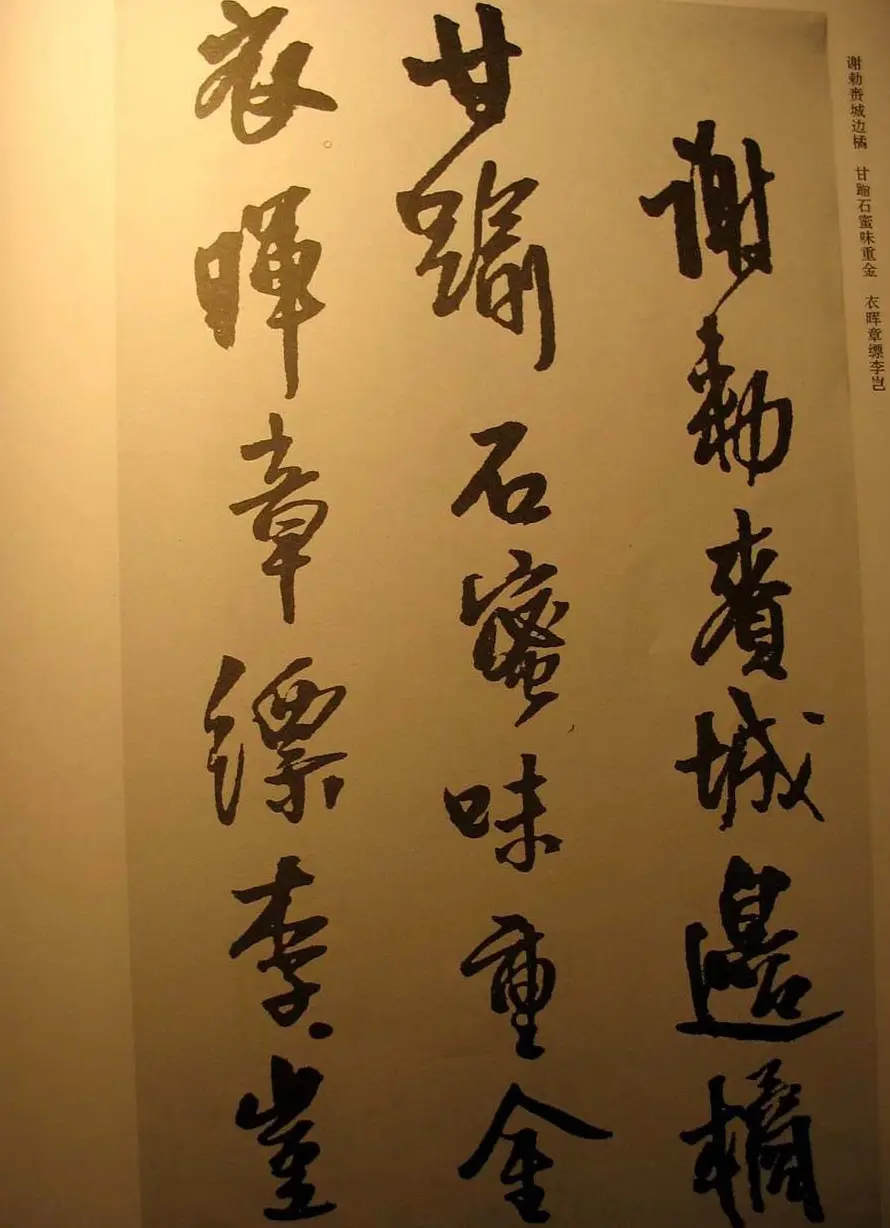 谢勅赉城边橘 甘踰石蜜味重金 衣晖章缥李岂
謝勅賚城邊橘
甘踰石蜜味重金
衣暉章縹李豈